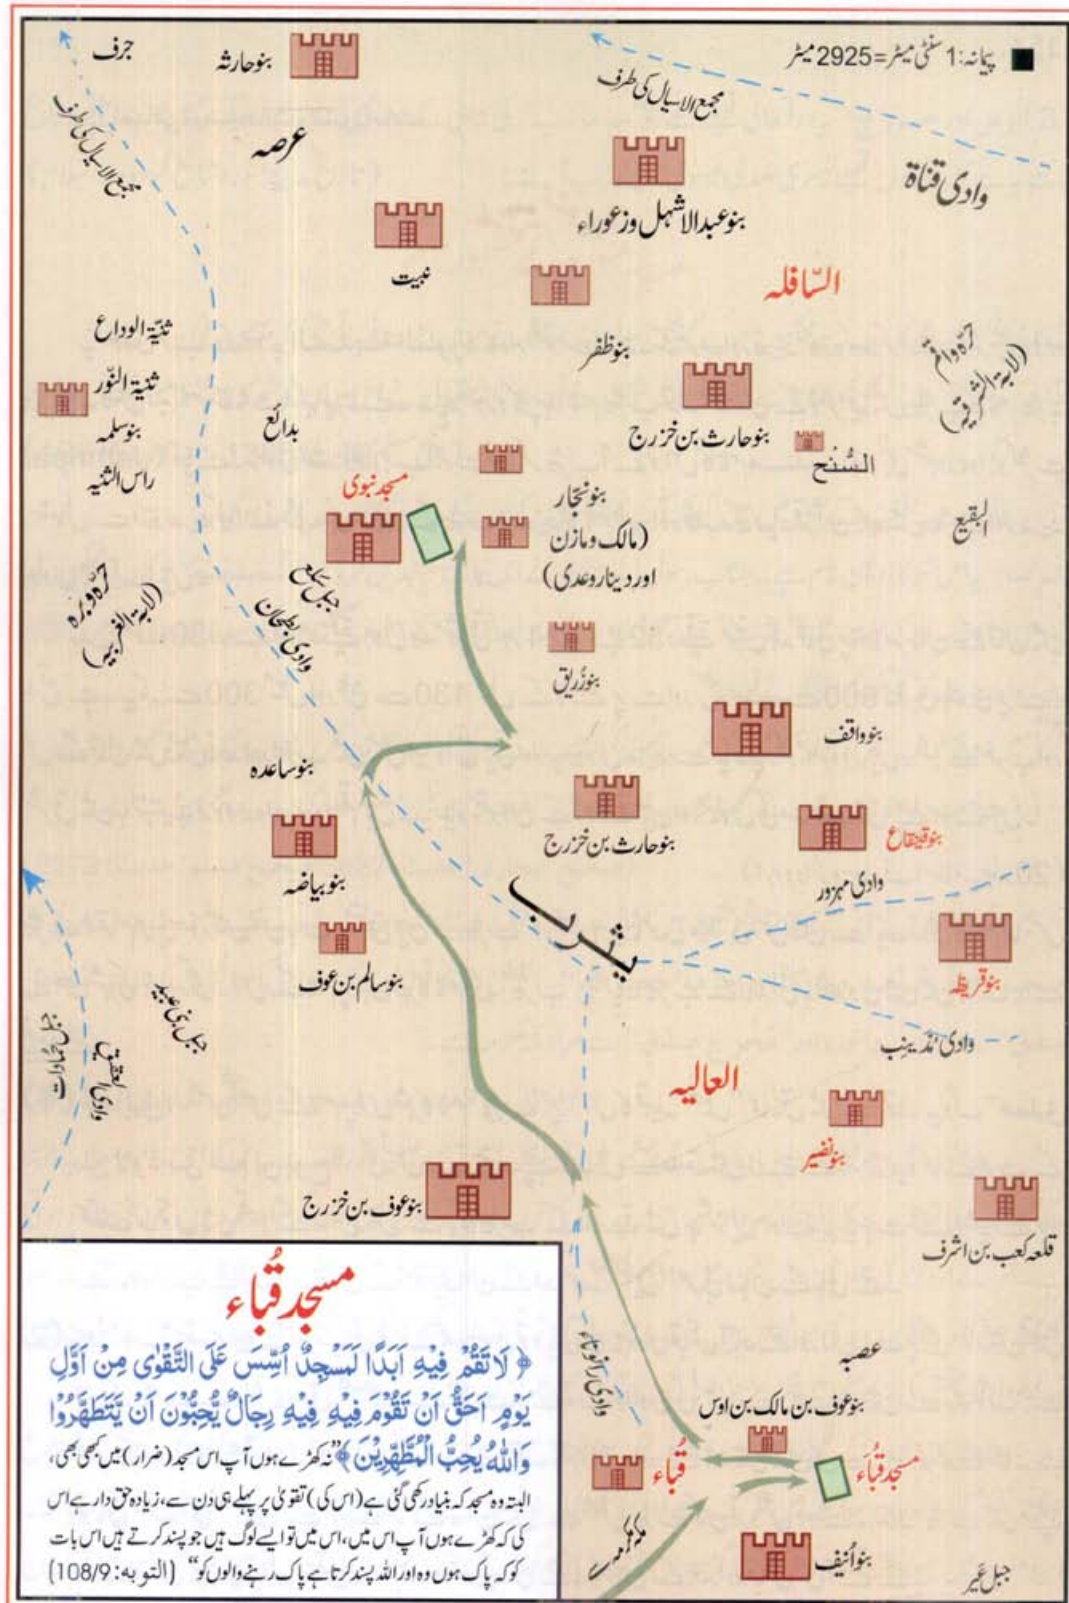 پیمانہ: 1 سنٹی میٹر = 2925 میٹر
جرف
بنو حارثہ
مجمع الاسیال کی طرف
مجمع الاسیال کی طرف
عرصہ
وادی قناۃ
بنو عبدالاشہل وزعوراء
السّافلہ
بنو ظفر
حرّہ واقم
(لابۃ الشرقیہ)
ثنیّۃ الوداع
ثنیۃ النّور
بنو سلمہ
راس الثنیہ
بدائع
بنو حارث بن خزرج
السُّنْح
البقیع
مسجد نبوی
بنو نجّار
(مالک و مازن
اور دینار و عدی)
حرّہ وبرہ
(لابۃ الغربیہ)
جبل سلع
وادی بطحان
بنو زُریق
بنو واقف
بنو ساعدہ
بنو حارث بن خزرج
بنو قینقاع
بنو بیاضہ
وادی مہزور
یثرب
بنو سالم بن عوف
بنو قریظہ
وادی مُذَیْنِب
جبل بنی عبید
وادی العقیق
العالیہ
بنو نضیر
بنو عوف بن خزرج
قلعہ کعب بن اشرف
وادی رانوناء
عصبہ
بنو عوف بن مالک بن اوس
قُباء
مسجد قُباَء
مکہ سے
بنو اُنیف
جبل عَیر
مسجد قُباء
﴿ لَا تَقُمْ فِيْهِ اَبَدًا لَمَسْجِدٌ اُسِّسَ عَلَى التَّقْوٰى مِنْ اَوَّلِ
يَوْمٍ اَحَقُّ اَنْ تَقُوْمَ فِيْهِ فِيْهِ رِجَالٌ يُّحِبُّوْنَ اَنْ يَّتَطَهَّرُوْا
وَاللّٰهُ يُحِبُّ الْمُطَّهِّرِيْنَ ﴾ ”نہ کھڑے ہوں آپ اس مسجد (ضرار) میں کبھی بھی،
البتہ وہ مسجد کہ بنیاد رکھی گئی ہے (اس کی) تقویٰ پر پہلے ہی دن سے، زیادہ حق دار ہے اس
کی کہ کھڑے ہوں آپ اس میں، اس میں تو ایسے لوگ ہیں جو پسند کرتے ہیں اس بات
کو کہ پاک ہوں وہ اور اللہ پسند کرتا ہے پاک رہنے والوں کو“ (التوبہ: 108/9)